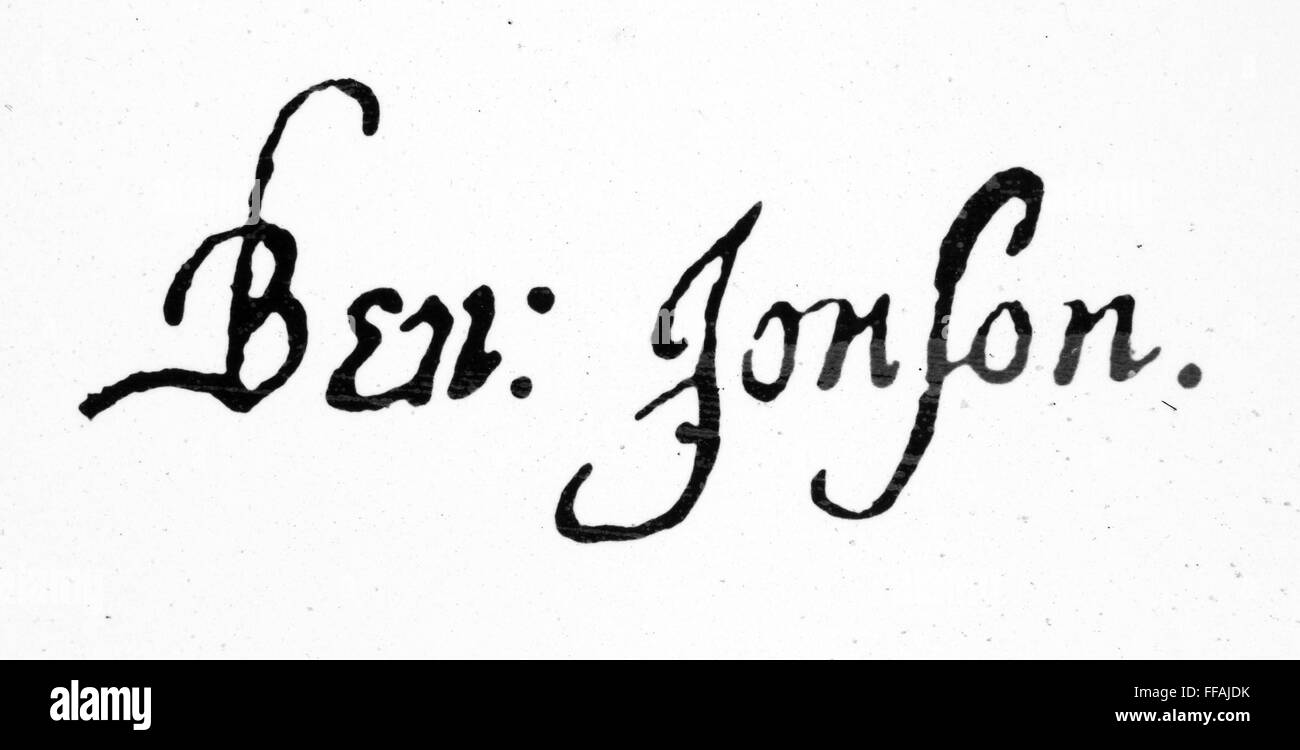 Ben: Jonſon.
alamy
Image ID: FFAJDK
www.alamy.com